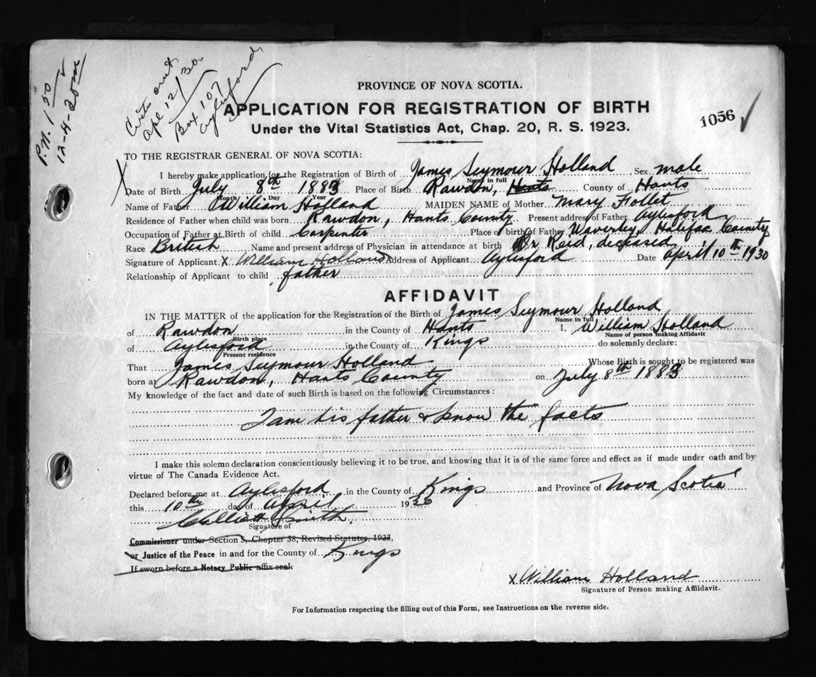 P.N. 150
12-4-30
Certs out
Apl 12/30
Box 107
Aylesford
PROVINCE OF NOVA SCOTIA.
APPLICATION FOR REGISTRATION OF BIRTH
1056
Under the Vital Statistics Act, Chap. 20, R. S. 1923.
TO THE REGISTRAR GENERAL OF NOVA SCOTIA:
I hereby make application for the Registration of Birth of James Seymour Holland Sex male
Name in full
Date of Birth July 8th 1883 Place of Birth Rawdon, Hants County of Hants
Month Day Year
Name of Father William Holland MAIDEN NAME of Mother Mary Follet
Residence of Father when child was born Rawdon, Hants County Present address of Father Aylesford
Occupation of Father at Birth of child Carpenter Place of birth of Father Waverley, Halifax County
Race British Name and present address of Physician in attendance at birth Dr Reid, deceased
Signature of Applicant X William Holland Address of Applicant Aylesford Date April 10th 1930
Relationship of Applicant to child father
AFFIDAVIT
IN THE MATTER of the application for the Registration of the Birth of James Seymour Holland
Name in full
of Rawdon in the County of Hants I, William Holland
Birth place Name of person making Affidavit
of Aylesford in the County of Kings do solemnly declare:
Present residence
That James Seymour Holland Whose Birth is sought to be registered was
born at Rawdon, Hants County on July 8th 1883
My knowledge of the fact and date of such Birth is based on the following Circumstances:
I am his father & know the facts
I make this solemn declaration conscientiously believing it to be true, and knowing that it is of the same force and effect as if made under oath and by
virtue of The Canada Evidence Act.
Declared before me at Aylesford in the County of Kings and Province of Nova Scotia
this 10th day of April 1930
Smith
Signature of
Commissioner under Section 3, Chapter 38, Revised Statutes, 1923,
or Justice of the Peace in and for the County of Kings
If sworn before a Notary Public affix seal
X William Holland
Signature of Person making Affidavit.
For Information respecting the filling out of this Form, see Instructions on the reverse side.